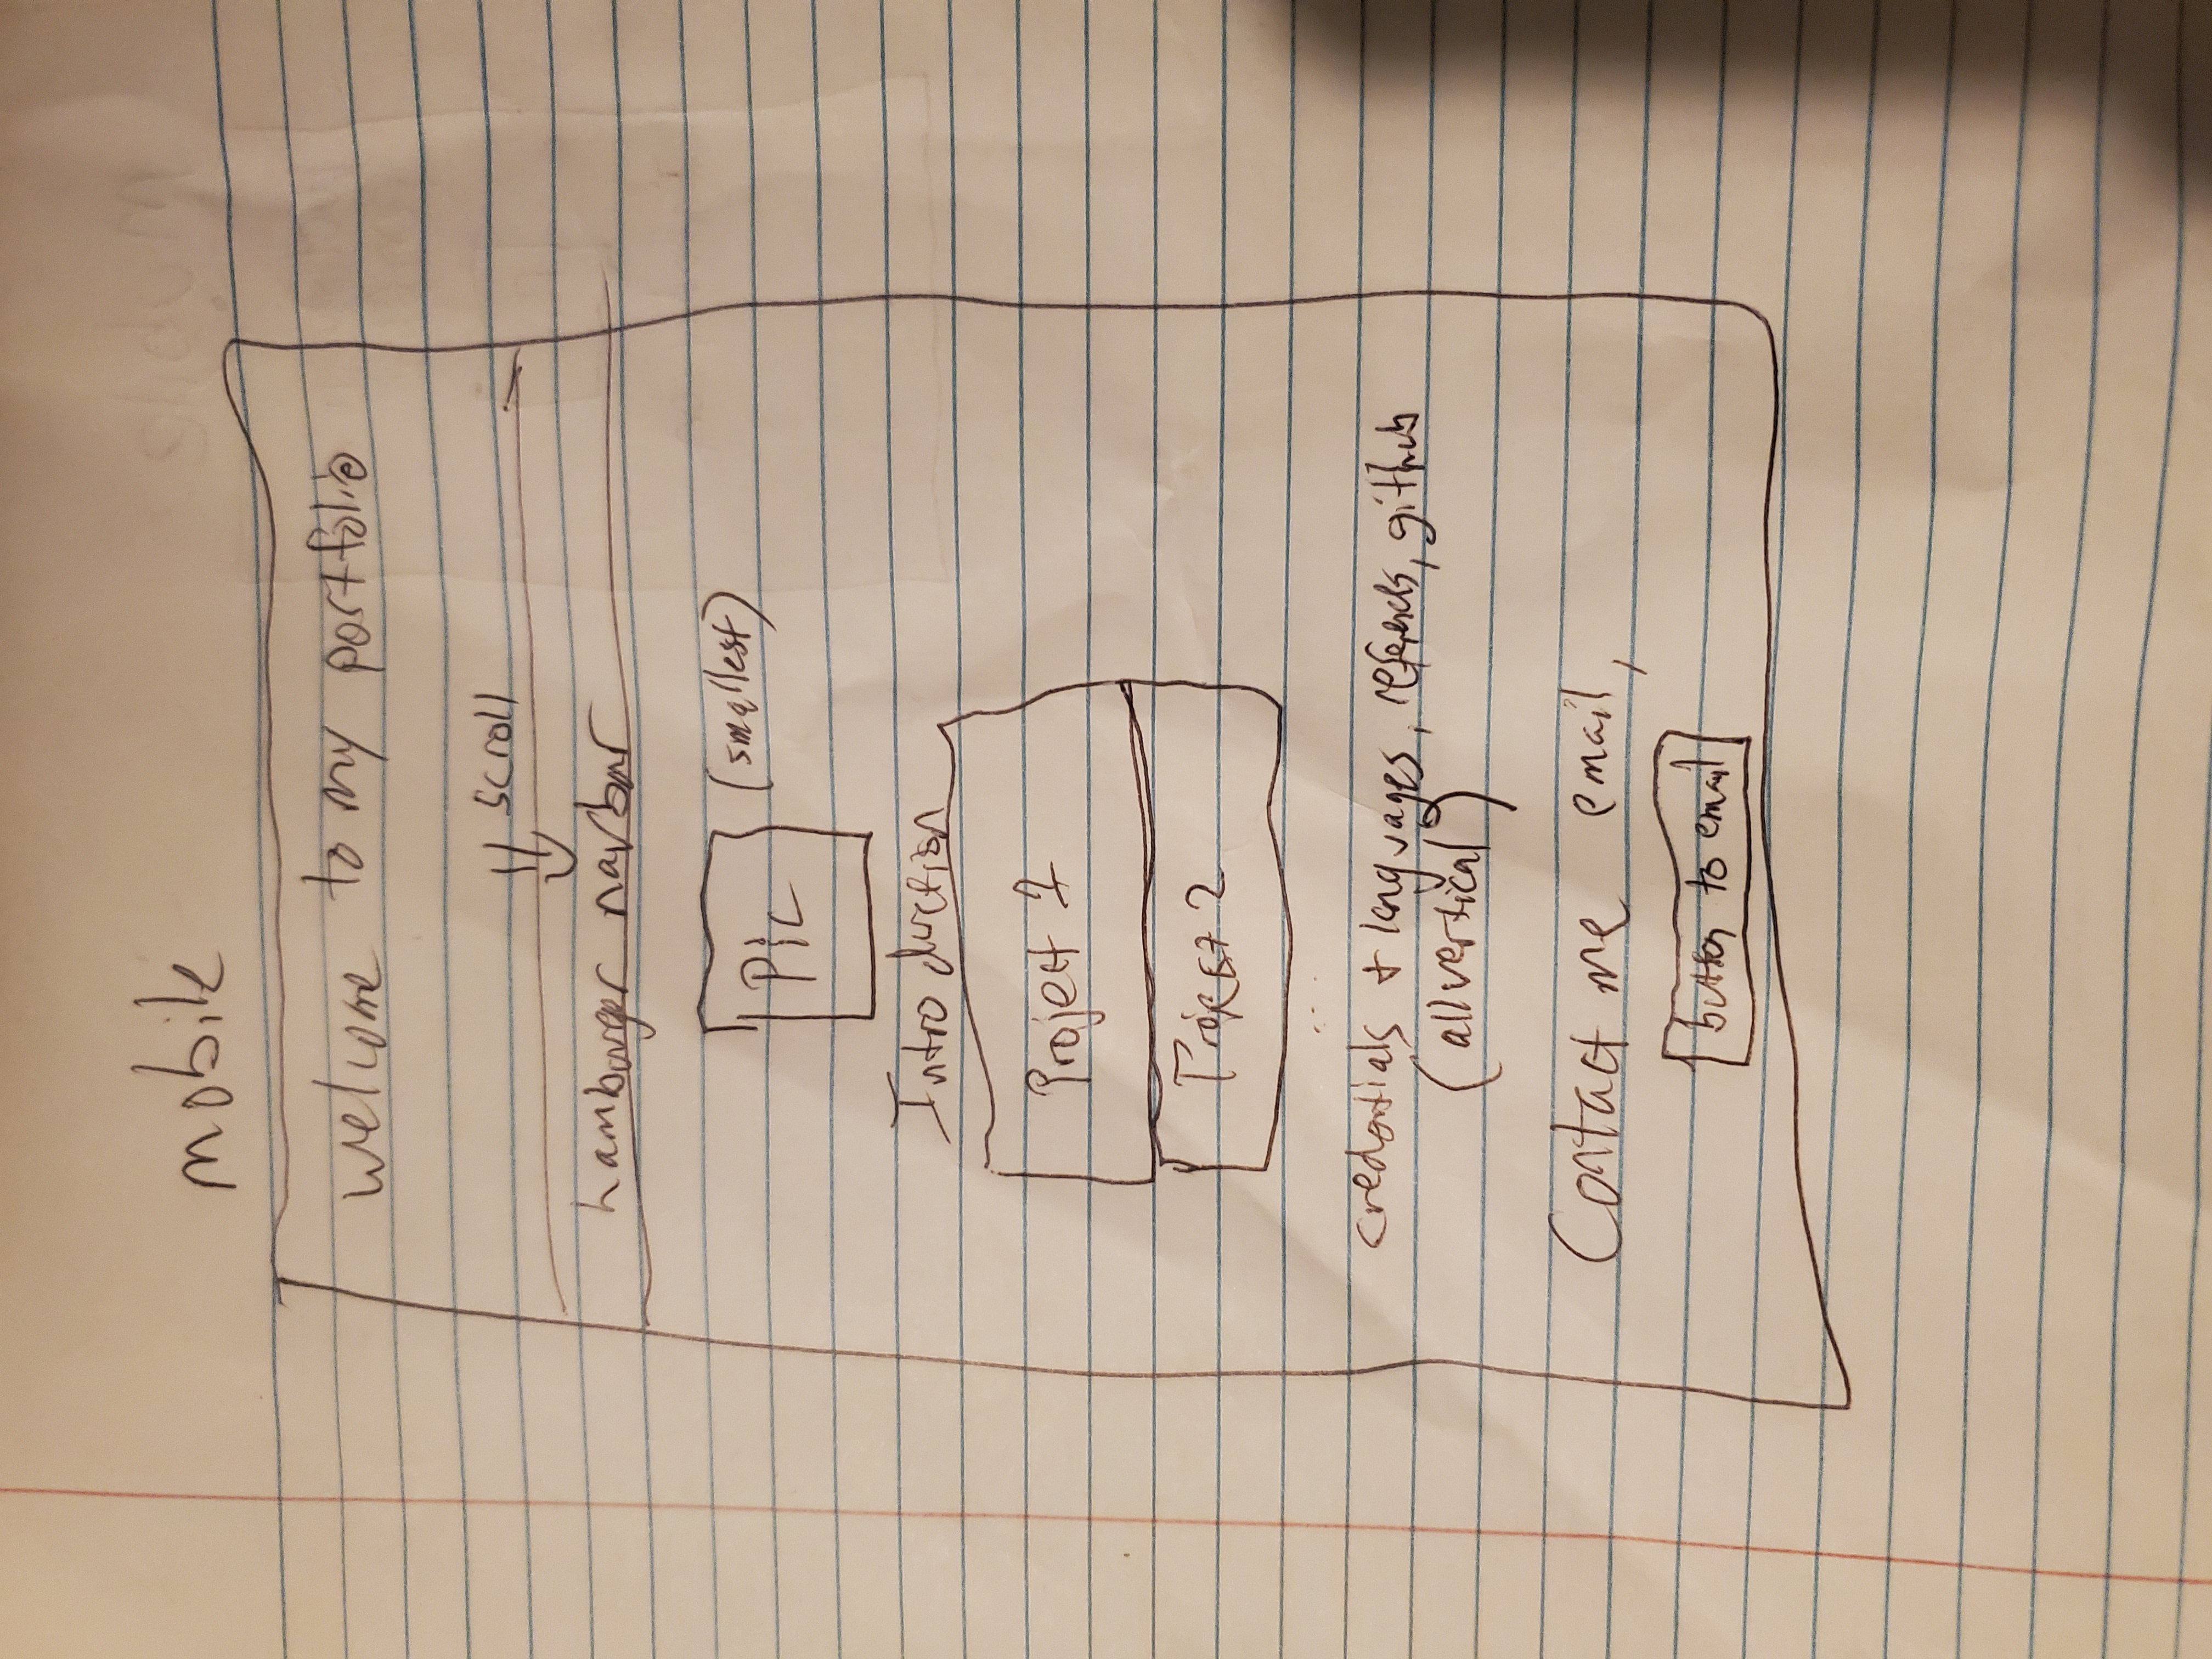 mobile
welcome to my portfolio
scroll
hamburger navbar
Pic (smallest)
Introduction
Project 1
Project 2
...
credentials + languages, github
(all vertical)
Contact me email,
button to email